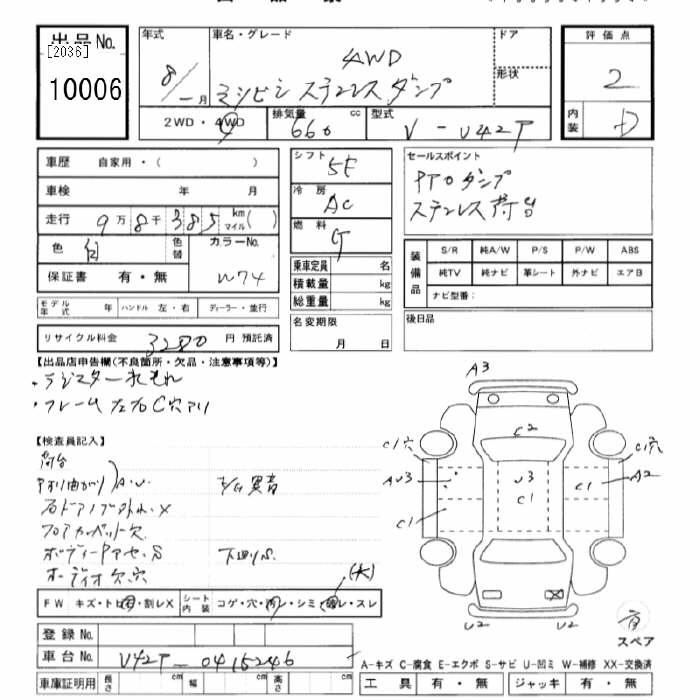 出品No.
[2036]
10006
年式
8/ 月
車名・グレード
4WD
ミツビシ ステンレス ダンプ
ドア
形状
評価点
2
内装
D
2WD・4WD
排気量
660
cc
型式
V-U42T
車歴 自家用・( )
車検 年 月
走行 9万8千385 km マイル( )
色 白
色替
カラーNo.
W74
保証書 有・無
モデル年式 年 ハンドル 左・右 ディーラー・並行
リサイクル料金 円 預託済
シフト 5F
冷房 AC
燃料 G
乗車定員 名
積載量 kg
総重量 kg
名変期限
月 日
セールスポイント
PTOダンプ
ステンレス荷台
装備品
S/R 純A/W P/S P/W ABS
純TV 純ナビ 革シート 外ナビ エアB
ナビ型番:
後日品
【出品店申告欄(不良箇所・欠品・注意事項等)】
・フレーム左右C穴アリ
【検査員記入】
荷台
アオリ曲がり A.U.
フロアカーペット欠
オーディオ欠.穴
下廻りS.
(大)
FW キズ・トビ石・割レX
シート内装 コゲ・穴・汚レ・シミ・破レ・スレ
登録No.
車台No. U42T-0415246
車庫証明用 長さ cm 幅 cm 高さ cm
A3
C2
C1穴
C1穴
AU3
U3
A2
C1
C1
C1
U2
U2
スペア
A-キズ C-腐食 E-エクボ S-サビ U-凹ミ W-補修 XX-交換済
工具 有・無 ジャッキ 有・無